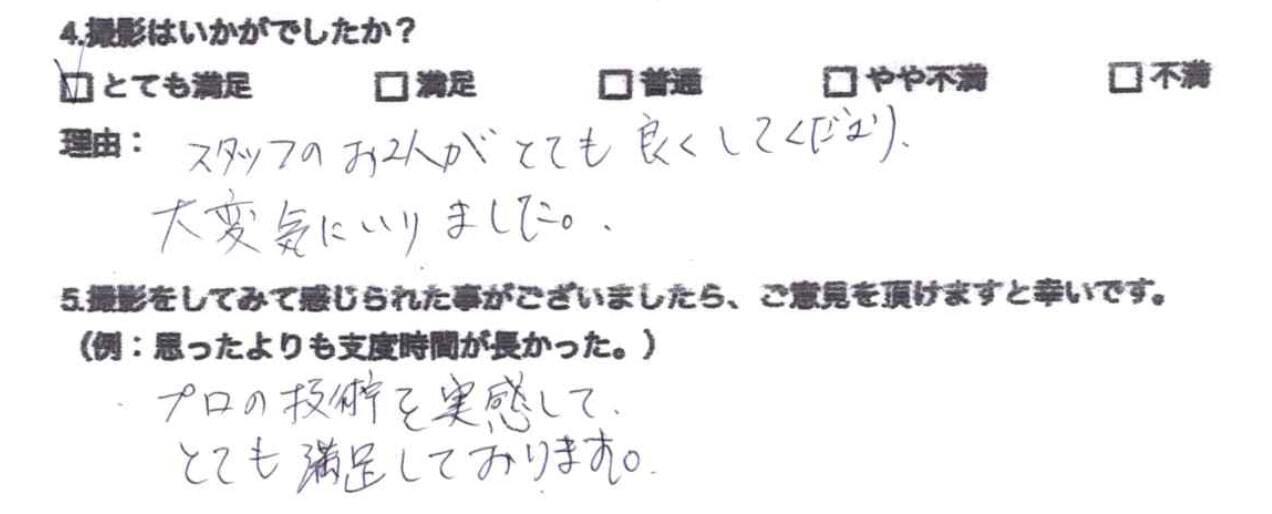 4.撮影はいかがでしたか？
☑とても満足 □満足 □普通 □やや不満 □不満
理由： スタッフのお2人がとても良くしてくださり、
大変気にいりました。
5.撮影をしてみて感じられた事がございましたら、ご意見を頂けますと幸いです。
（例：思ったよりも支度時間が長かった。）
プロの技術を実感して、
とても満足しております。